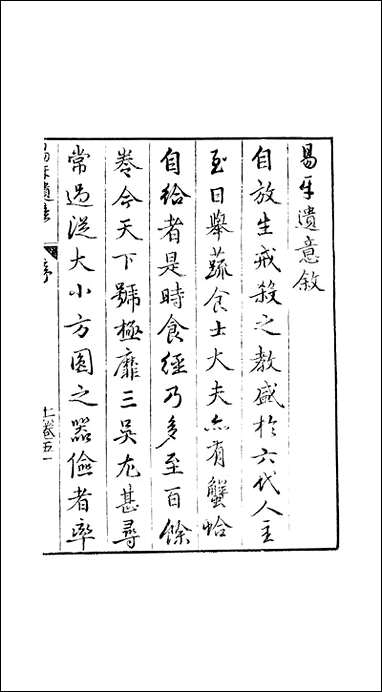 易牙遺意敘
自放生戒殺之教盛於六代人主
至日舉蔬食士大夫亦有蟹蛤
自給者是時食經乃多至百餘
卷今天下號極靡三吳尤甚尋
常過從大小方圓之器儉者率
易牙遺意
序
上卷五一